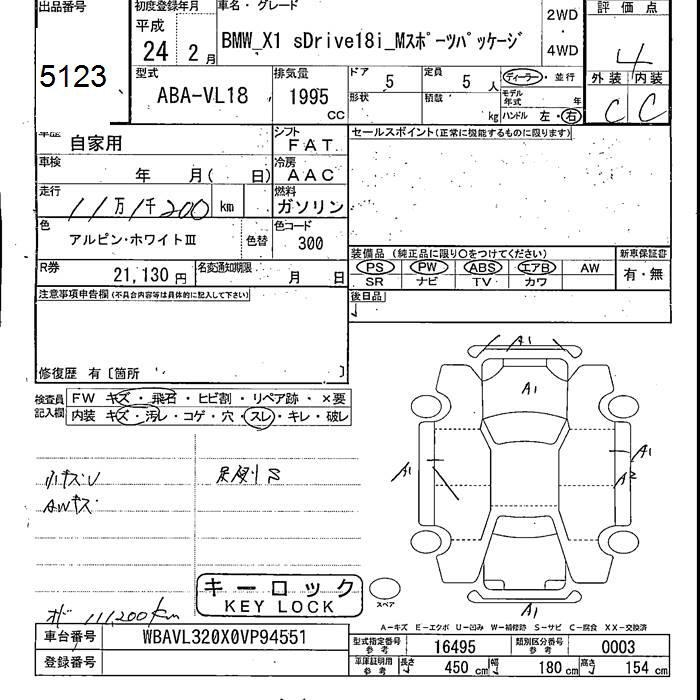 出品番号
初度登録年月
車名・グレード
評価点
平成
24 2月
BMW_X1 sDrive18i_Mスポーツパッケージ
2WD
・
4WD
4
5123
型式
ABA-VL18
排気量
1995
cc
ドア
5
定員
5 人
ディーラー・並行
外装 内装
C C
形状
積載
kg
モデル年式
年
ハンドル 左・右
車歴
自家用
シフト
FAT
セールスポイント(正常に機能するものに限ります)
車検
年 月( 日)
冷房
AAC
走行
11万1千200 km
燃料
ガソリン
色
アルピン・ホワイトIII
色替
色コード
300
装備品(純正品に限り〇をつけてください)
新車保証書
PS PW ABS エアB AW
SR ナビ TV カワ
有・無
R券
21,130円
名変通知期限
月 日
注意事項申告欄(不具合内容等は具体的に記入して下さい)
後日品
修復歴 有〔箇所 〕
検査員記入欄
FW キズ・飛石・ヒビ割・リペア跡・×要
内装 キズ・汚レ・コゲ・穴・スレ・キレ・破レ
A1
A1
A1
A1
A2
小キズU
AWキズ
S
キーロック
KEY LOCK
スペア
A1
111,200km
A-キズ E-エクボ U-凹み W-補修跡 S-サビ C-腐食 XX-交換済
車台番号
WBAVL320X0VP94551
型式指定番号参考
16495
類別区分番号参考
0003
登録番号
車庫証明用参考
長さ 450 cm
幅 180 cm
高さ 154 cm